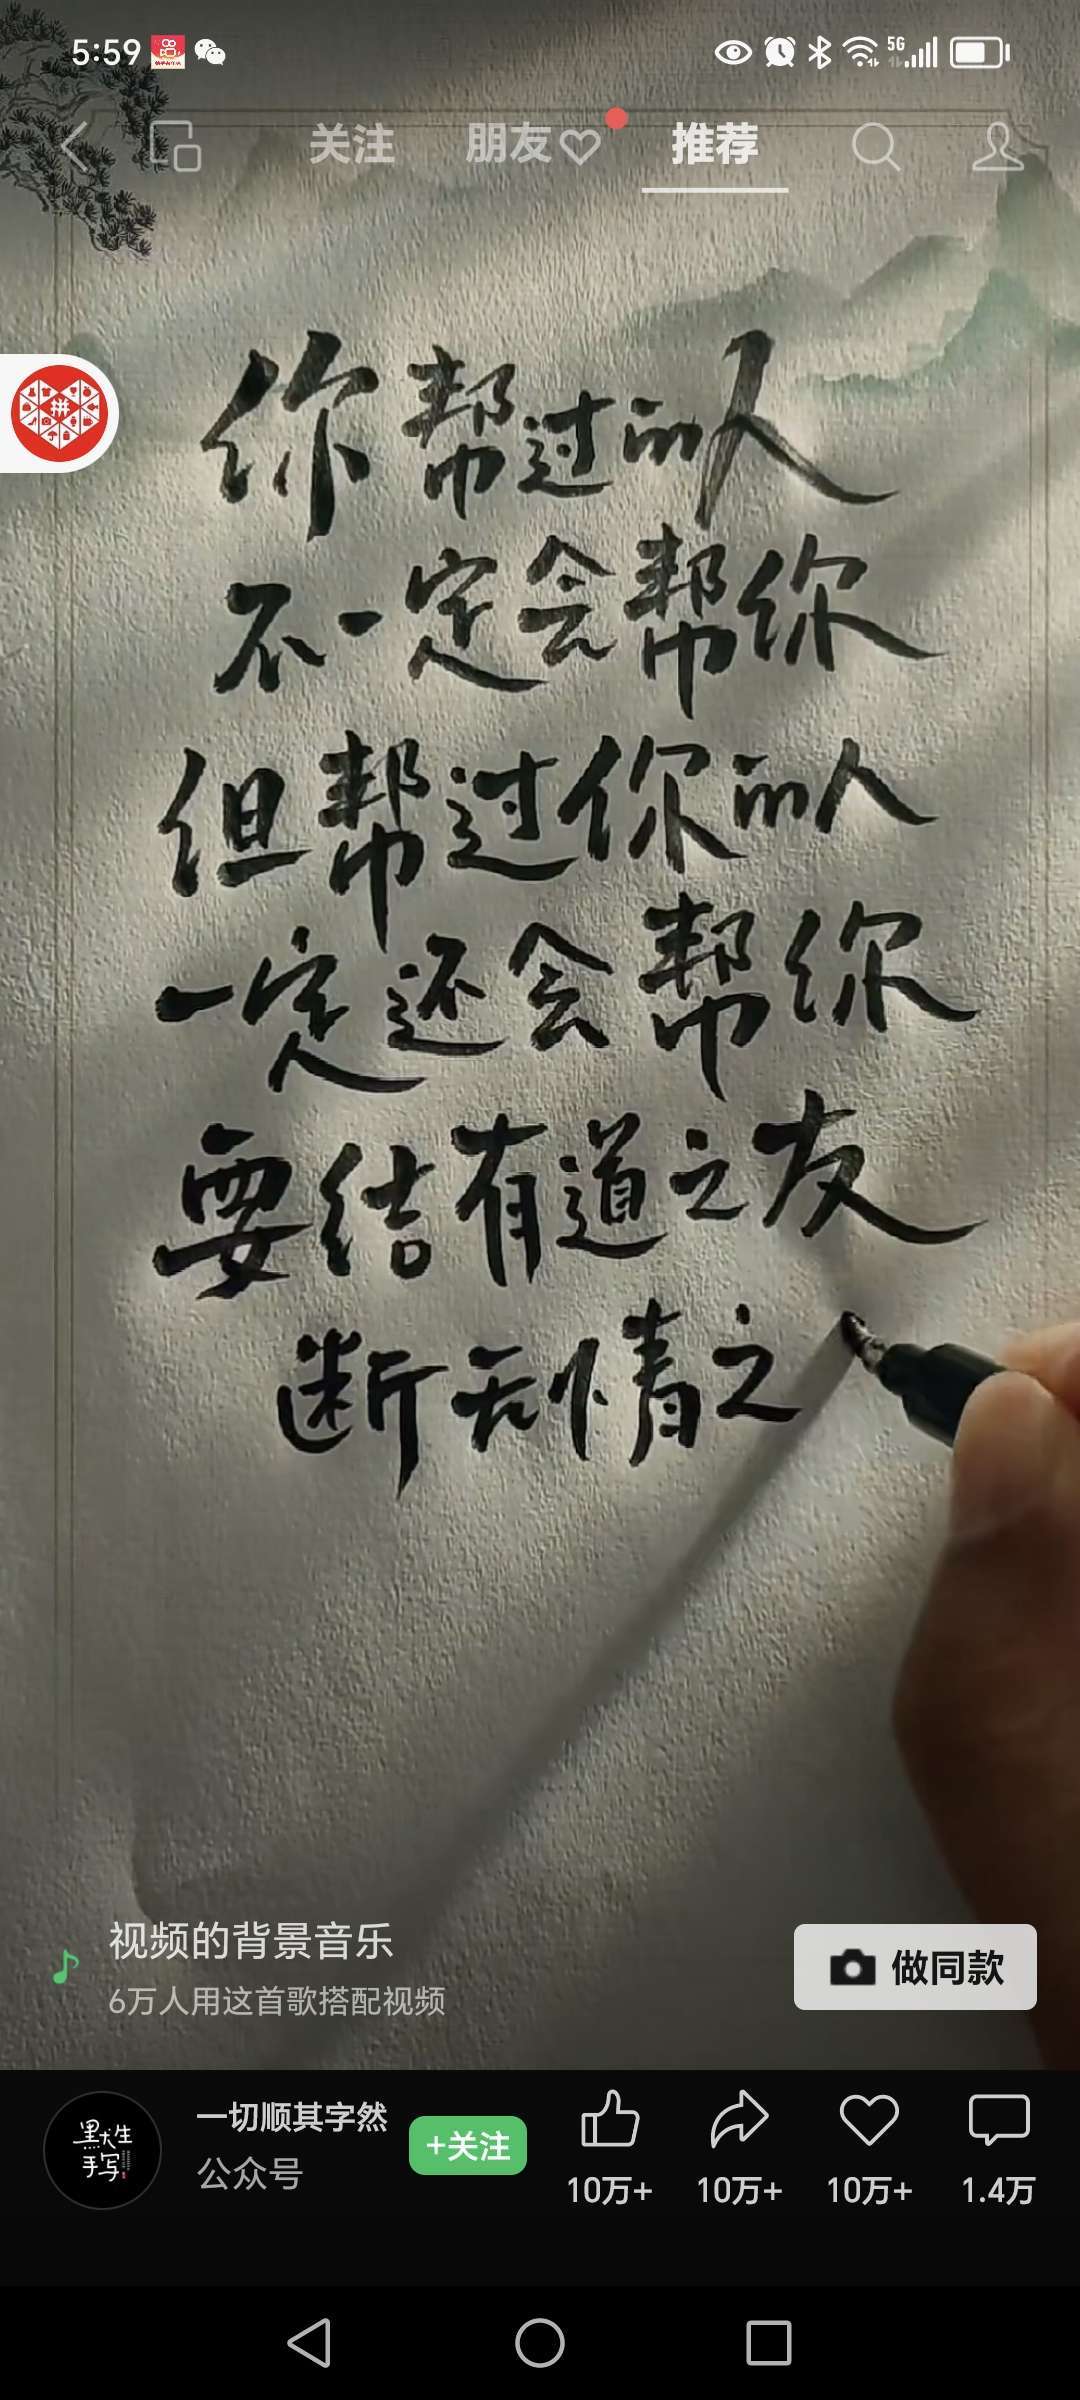 5:59
5G
关注 朋友 推荐
拼
你帮过的人
不一定会帮你
但帮过你的人
一定还会帮你
要结有道之友
断无情之
视频的背景音乐
6万人用这首歌搭配视频
做同款
黑犬生
手写
一切顺其字然
公众号
+关注
10万+ 10万+ 10万+ 1.4万